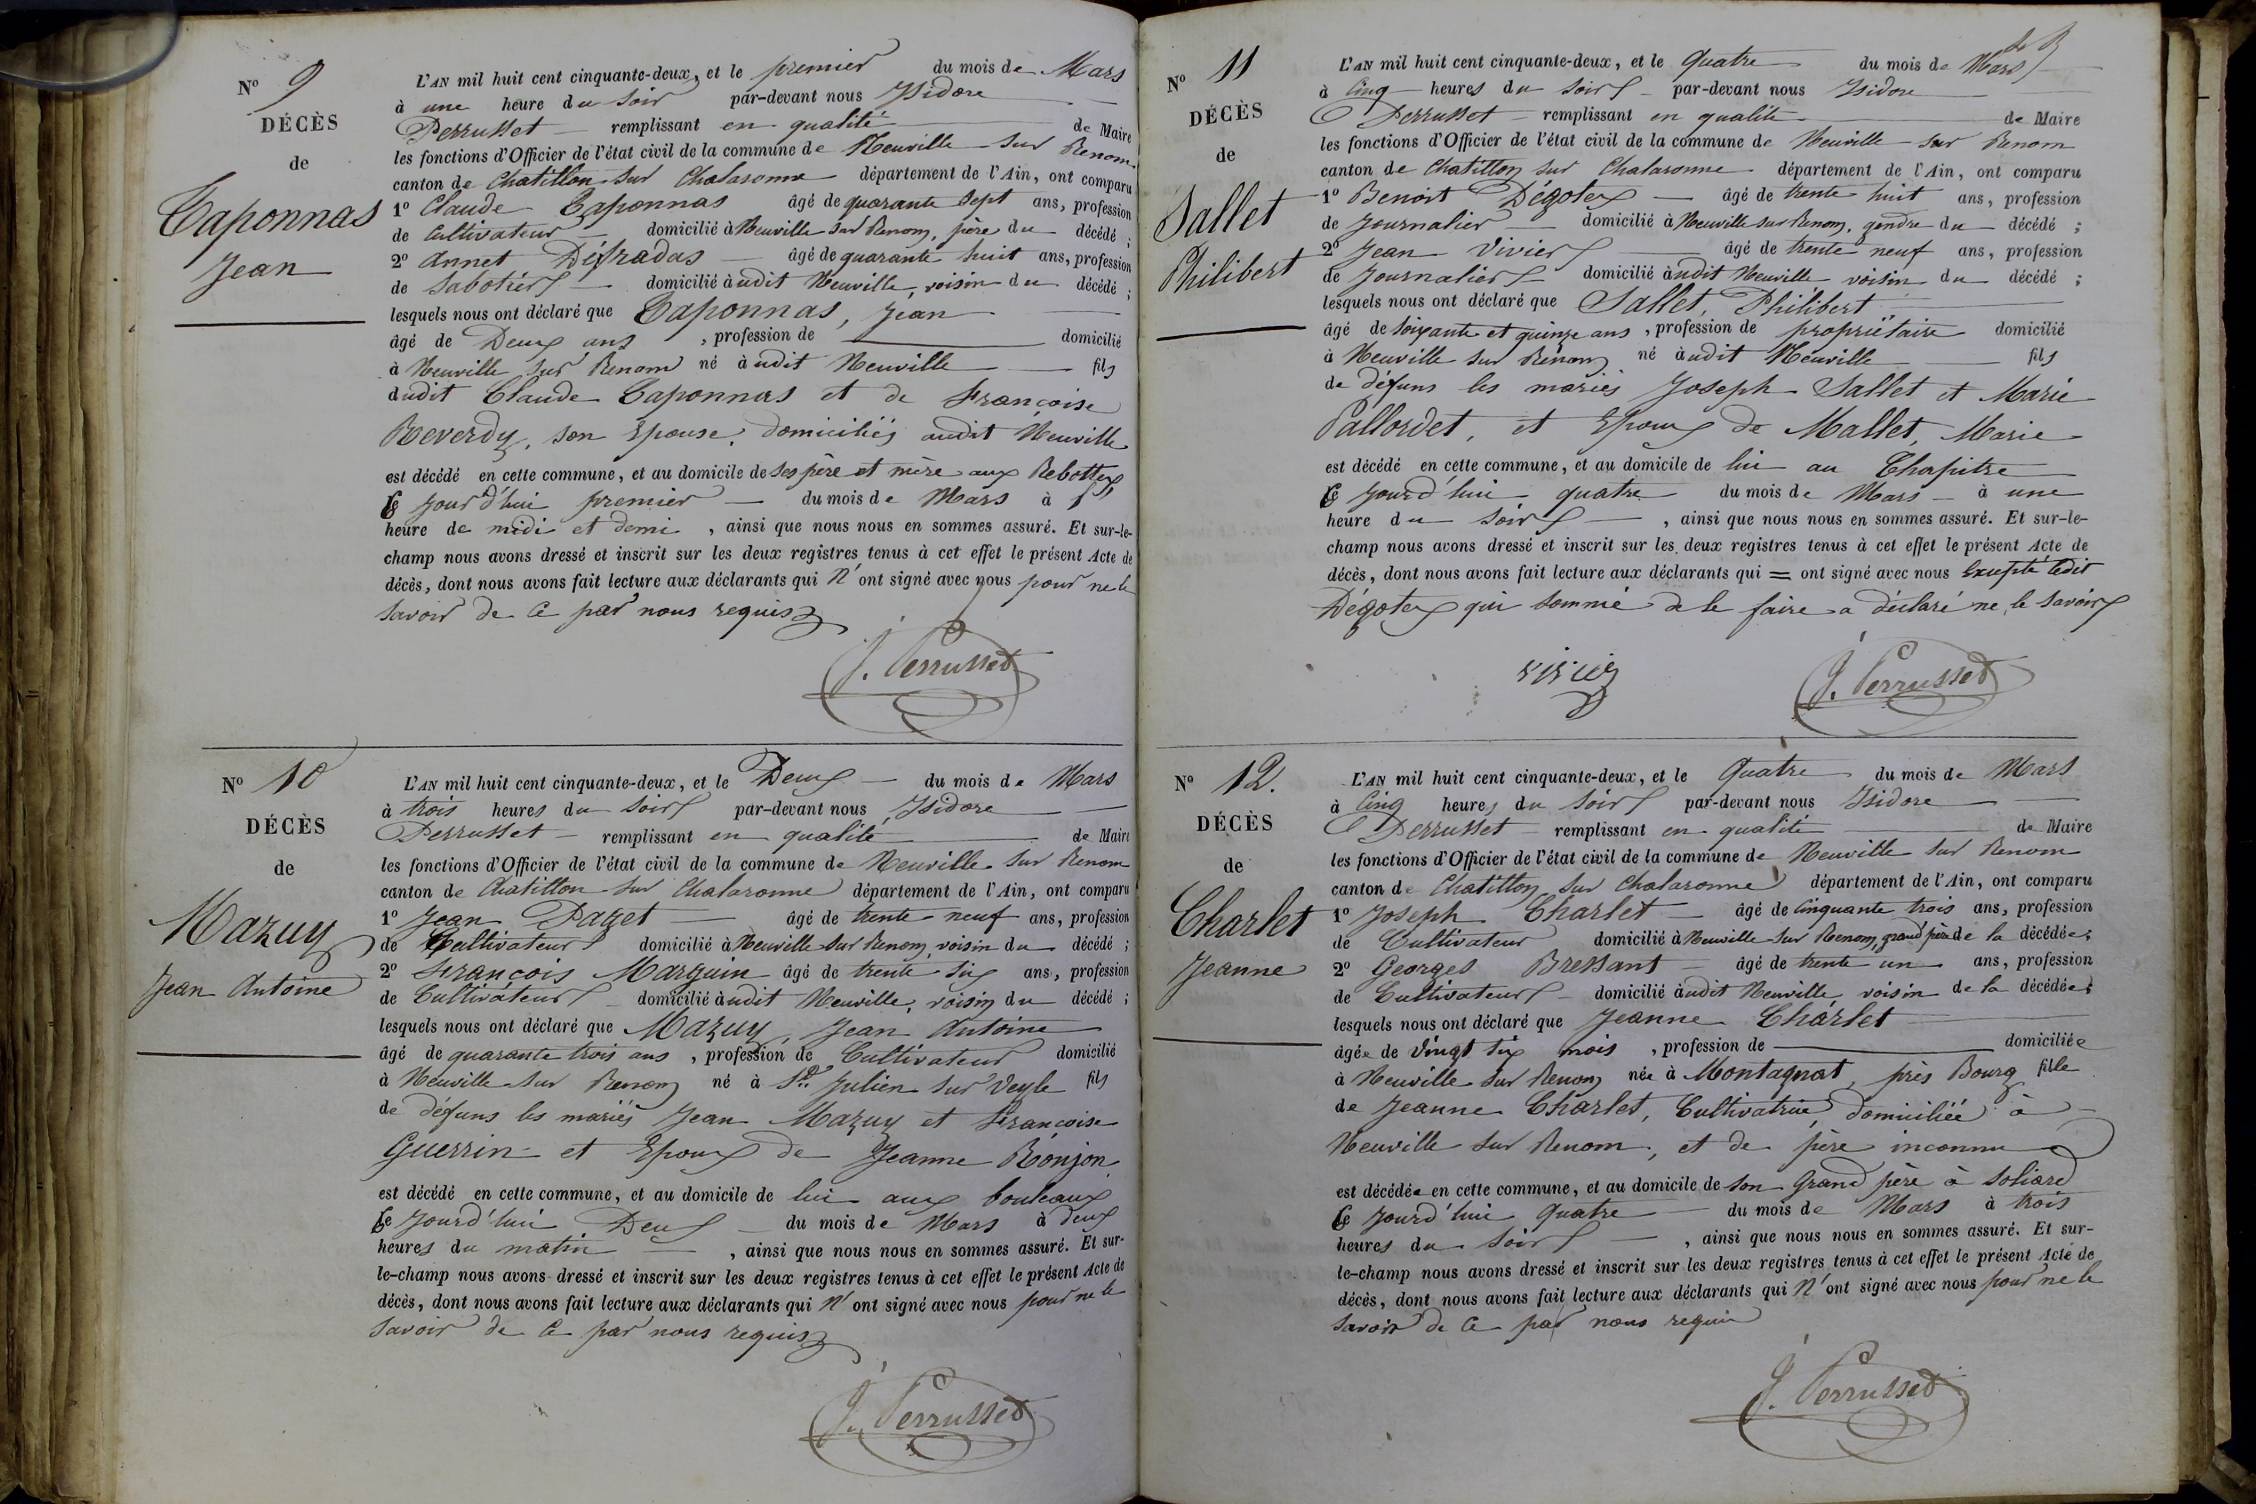 N° 9
DÉCÈS
de
Caponnas
Jean
L'AN mil huit cent cinquante-deux, et le premier du mois de Mars
à une heure du soir par-devant nous Isidore
Perrusset remplissant en qualité de Maire
les fonctions d'Officier de l'état civil de la commune de Neuville sur Renom
canton de Chatillon sur Chalaronne département de l'Ain, ont comparu
1° Claude Caponnas âgé de quarante sept ans, profession
de Cultivateur domicilié à Neuville sur Renom, père du décédé ;
2° Annet Défradas âgé de quarante huit ans, profession
de Sabotier domicilié audit Neuville, voisin du décédé ;
lesquels nous ont déclaré que Caponnas, Jean
âgé de Deux ans , profession de domicilié
à Neuville sur Renom né audit Neuville fils
dudit Claude Caponnas et de Françoise
Reverdy, son Epouse, domiciliés audit Neuville
est décédé en cette commune, et au domicile de ses père et mère aux Rebottes
Ce jourd'hui premier du mois de Mars à l'
heure de midi et demi , ainsi que nous nous en sommes assuré. Et sur-le-
champ nous avons dressé et inscrit sur les deux registres tenus à cet effet le présent Acte de
décès, dont nous avons fait lecture aux déclarants qui n'ont signé avec nous pour ne le
savoir de ce par nous requis
J. Perrusset
N° 10
DÉCÈS
de
Mazuy
Jean Antoine
L'AN mil huit cent cinquante-deux, et le Deux du mois de Mars
à trois heures du soir par-devant nous Isidore
Perrusset remplissant en qualité de Maire
les fonctions d'Officier de l'état civil de la commune de Neuville sur Renom
canton de Chatillon sur Chalaronne département de l'Ain, ont comparu
1° Jean Pazet âgé de trente neuf ans, profession
de Cultivateur domicilié à Neuville sur Renom, voisin du décédé ;
2° François Marguin âgé de trente six ans, profession
de Cultivateur domicilié audit Neuville, voisin du décédé ;
lesquels nous ont déclaré que Mazuy, Jean Antoine
âgé de quarante trois ans , profession de Cultivateur domicilié
à Neuville sur Renom né à St Julien sur Veyle fils
de défuns les mariés Jean Mazuy et Françoise
Guerrin et Epoux de Jeanne Ronjon
est décédé en cette commune, et au domicile de lui aux bouleaux
Ce jourd'hui Deux du mois de Mars à deux
heures du matin , ainsi que nous nous en sommes assuré. Et sur-
le-champ nous avons dressé et inscrit sur les deux registres tenus à cet effet le présent Acte de
décès, dont nous avons fait lecture aux déclarants qui n'ont signé avec nous pour ne le
savoir de ce par nous requis
J. Perrusset
N° 11
DÉCÈS
de
Sallet
Philibert
L'AN mil huit cent cinquante-deux, et le Quatre du mois de Mars
à Cinq heures du soir par-devant nous Isidore
Perrusset remplissant en qualité de Maire
les fonctions d'Officier de l'état civil de la commune de Neuville sur Renom
canton de Chatillon sur Chalaronne département de l'Ain, ont comparu
1° Benoit Dégotex âgé de trente huit ans, profession
de Journalier domicilié à Neuville sur Renom, gendre du décédé ;
2° Jean Vivier âgé de trente neuf ans, profession
de Journalier domicilié audit Neuville, voisin du décédé ;
lesquels nous ont déclaré que Sallet, Philibert
âgé de soixante et quinze ans , profession de propriétaire domicilié
à Neuville sur Renom né audit Neuville fils
de défuns les mariés Joseph Sallet et Marie
Pallordet, et Epoux de Mallet, Marie
est décédé en cette commune, et au domicile de lui au Chapitre
Ce jourd'hui quatre du mois de Mars à une
heure du soir , ainsi que nous nous en sommes assuré. Et sur-le-
champ nous avons dressé et inscrit sur les deux registres tenus à cet effet le présent Acte de
décès, dont nous avons fait lecture aux déclarants qui = ont signé avec nous Excepté ledit
Dégotex qui sommé de le faire a déclaré ne le savoir
vivier
J. Perrusset
N° 12.
DÉCÈS
de
Charlet
Jeanne
L'AN mil huit cent cinquante-deux, et le Quatre du mois de Mars
à Cinq heures du soir par-devant nous Isidore
Perrusset remplissant en qualité de Maire
les fonctions d'Officier de l'état civil de la commune de Neuville sur Renom
canton de Chatillon sur Chalaronne département de l'Ain, ont comparu
1° Joseph Charlet âgé de Cinquante trois ans, profession
de Cultivateur domicilié à Neuville sur Renom, grand père de la décédée ;
2° Georges Bressant âgé de trente un ans, profession
de Cultivateur domicilié audit Neuville, voisin de la décédée ;
lesquels nous ont déclaré que Jeanne Charlet
âgée de Vingt six mois , profession de domiciliée
à Neuville sur Renom née à Montagnat, près Bourg fille
de Jeanne Charlet, Cultivatrice, domiciliée à
Neuville sur Renom, et de père inconnu
est décédée en cette commune, et au domicile de son Grand père à Soliard
Ce jourd'hui quatre du mois de Mars à trois
heures du soir , ainsi que nous nous en sommes assuré. Et sur-
le-champ nous avons dressé et inscrit sur les deux registres tenus à cet effet le présent Acte de
décès, dont nous avons fait lecture aux déclarants qui n'ont signé avec nous pour ne le
savoir de ce par nous requis
J. Perrusset